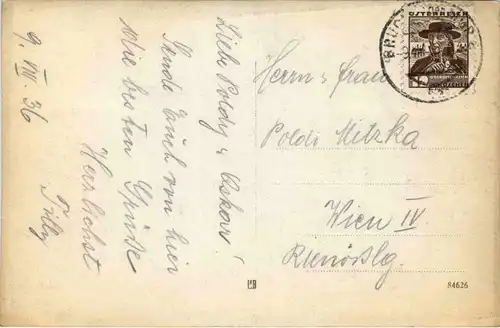 9. VIII. 36
Liebe Poldy u. Oskar!
Sende Euch von hier
die besten Grüße
Herzlichst
Tilly
ÖSTERREICH
BRUCK
Herrn u. Frau
Poldi Mitzka
Wien IV
Rienößlg.
84626